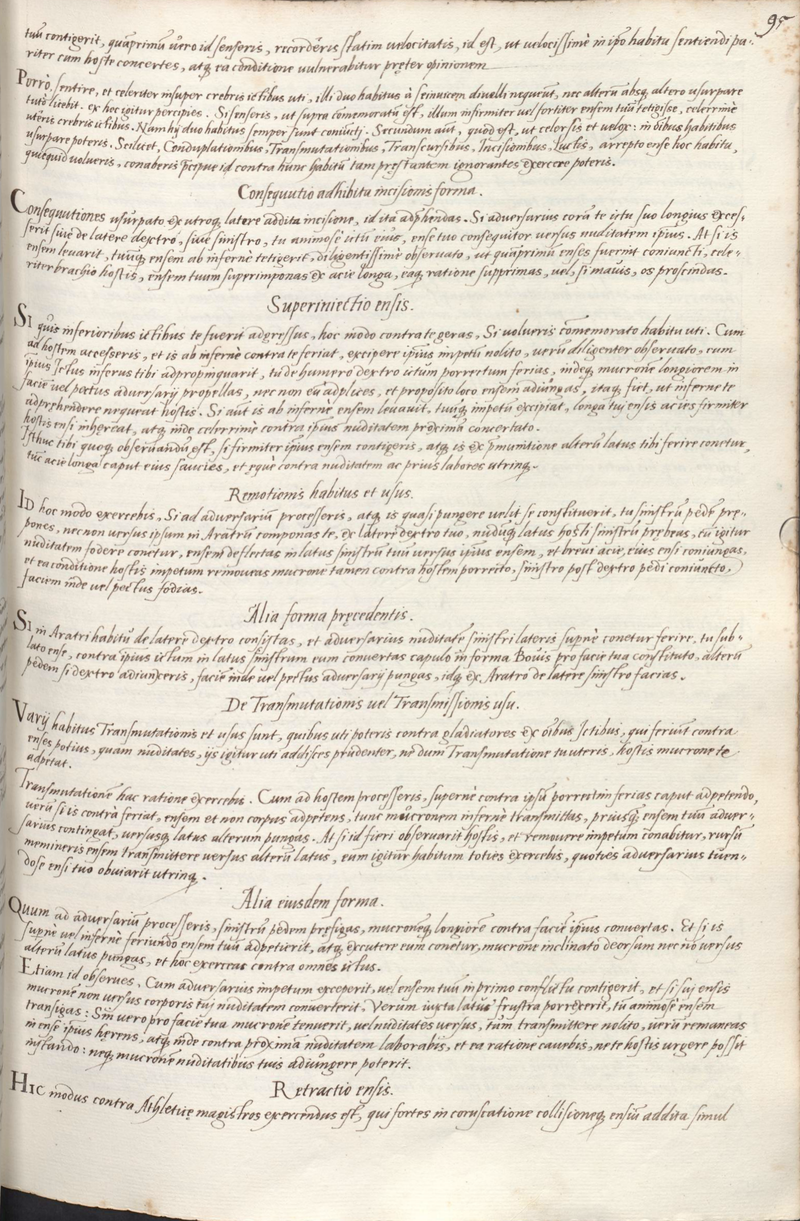 95
tuū contigerit, quāprimū uero id senseris, recorderis statim uelocitatis, id est, ut uelocissimè in ipō habitu sentiendi pa-
riter cum hoste concertes, atq; ea conditione vulnerabitur pręter opinionem
Porrò, sentire, et celeriter insuper crebris ictibus uti, illi duo habitus à seinuicem diuelli nequeūt, nec alterū absq; altero usurpare
tutò licebit. ex hoc igitur percipies. Si senseris, ut supra comemoratū est, illum infirmiter uel fortiter ensem tuū tetigisse, celerrimè
uteris crebris ictibus. Nam hij duo habitus semper sunt coniucti. Secundum aūt, quod est, ut celer sis et velox: in oībus habitibus
usurpare poteris. Scilicet, Conduplationibus, Transmutationibus, Transcursibus, Incisionibus, Luctis, arrepto ense hoc habitu,
quicquid uolueris, conaberis pcipue id contra hunc habitū tam pręstantem ignorantes exercere poteris.
Consequutio adhibita incisionis forma.
Consequutiones usurpato ex utroq; latere addita incisione, id ita adphendas. Si aduersarius corā te ictu suo longius exces-
serit siue de latere dextro, siue sinistro, tu animosè ictū eius, ense tuo consequitor versus nuditatem ipius. At si is
ensem leuarit, tuūq; ensem ab infernè tetigerit, diligentissimè obseruato, ut quāprimū enses fuerint coniuncti, cele-
riter brachio hostis, ensem tuum superimponas ex acie longa, eaq; ratione supprimas, vel, si mauis, os proscindas.
Superiniectio ensis.
Si quis inferioribus ictibus te fuerit adgressus, hoc modo contra te geras, Si uolueris comemorato habitu uti. Cum
ad hostem accesseris, et is ab infernè contra te feriat, excipere ipius impetū nolito, uerū diligenter obseruato, cum
ipius Ictus inferus tibi adpropinquarit, tu de humero dextro ictum porrectum ferias, indeq; mucronē longiorem in
facie uel pectus aduersarij propellas, nec non eū adplices, et proposito loco ensem adiungas, itaq; fiet, ut infernè te
adprehendere nequeat hostis. Si aūt is ab infernè ensem leuauit, tuūq; impetū excipiat, longa tuj ensis acies firmiter
hostis ensi inhęreat, atq; inde celerrimè contra ipius nuditatem proximā concertato.
Isthuc tibi quoq; obseruandū est, si firmiter ipius ensem contigeris, atq; is ex pmunitione alterū latus tibi ferire conetur,
tuc acie longa caput eius saucies, et ęquè contra nuditatem ac prius labores utrinq;
Remotionis habitus et usus.
ID hoc modo exercebis. Si ad aduersariū processeris, atq; is quasi pungere uelit se constituerit, tu sinistrū pedē pre-
pones, nec non versus ipsum in Aratrū componas te, ex latere dextro tuo, nudūq; latus hosti sinistrū prębeas, tū igitur
nuditatem fodere conetur, ensem deflectas in latus sinistrū tuū versus ipius ensem, et breui acie, eius ensi coniungas,
et ea conditione hostis impetum remoueas mucrone tamen contra hostem porrecto, sinistro post dextro pedi coniuncto,
faciem inde uel pectus fodias.
Alia forma pręcedentis.
Si in Aratri habitū de latere dextro consistas, et aduersarius nuditatē sinistri lateris supernè conetur ferire, tu sub-
lato ense, contra ipius ictum in latus sinistrum eum conuertas capulo in forma Bouis pro facie tua constituto, alterū
pedem si dextro adiunxeris, facie inde uel pectus aduersarij pungas, idq; ex Aratro de latere sinistro facias.
De Transmutationis uel Transmissionis usu.
Varij habitus Transmutationis et usus sunt, quibus uti poteris contra gladiatores ex oībus Ictibus, qui feriūt contra
enses potius, quam nuditates, ijs igitur uti addisces prudenter, ne dum Transmutatione tu uteris, hostis mucrone te
adpetat.
Transmutatione hac ratione exercebis. Cum ad hostem processeris, supernè contra ipsū porrectim ferias caput adpetendo,
uerū si is contra feriat, ensem et non corpus adpetens, tunc mucronem infernè transmittas, priusq; ensem tuū aduer-
sarius contingat, versusq; latus alterum pungas. At si id fieri obseruarit hostis, et remouere impetum conabitur, rursū
memineris ensem transmittere versus alterū latus, eum igitur habitum toties exercebis, quoties aduersarius tuen-
dose ensi tuo obuiarit utrinq;.
Alia eiusdem forma.
Quum ad aduersariū processeris, sinistrū pedem pręfigas, mucroneq; longiorē contra faciē ipius conuertas. Et si is
supernè uel infernè feriundo ensem tuū adpetierit, atq; excutere eum conetur, mucrone inclinato deorsum nec nō versus
alterū latus pungas, et hoc exerceas contra omnes ictus.
Etiam id obserues, Cum aduersarius impetum exceperit, uel ensem tuū in primo conflictu contigerit, et si suj ensis
mucronē non versus corporis tuj nuditatem conuerterit, Verum iuxta latus frustra porrexerit, tū animosè ensem
transigas: Sin uero pro facie tua mucronē tenuerit, uel nuditates versus, tum transmittere nolito, uerū remaneas
in ense ipius hęrens, atq; inde contra proximā nuditatem laborabis, et ea ratione cauebis, ne te hostis urgere possit
instando: neq; mucronē nuditatibus tuis adiungere poterit.
Retractio ensis.
HIC modus contra Athleticę magistros exercendus est, qui fortes in coruscatione collisioneq; ensiū addita simul